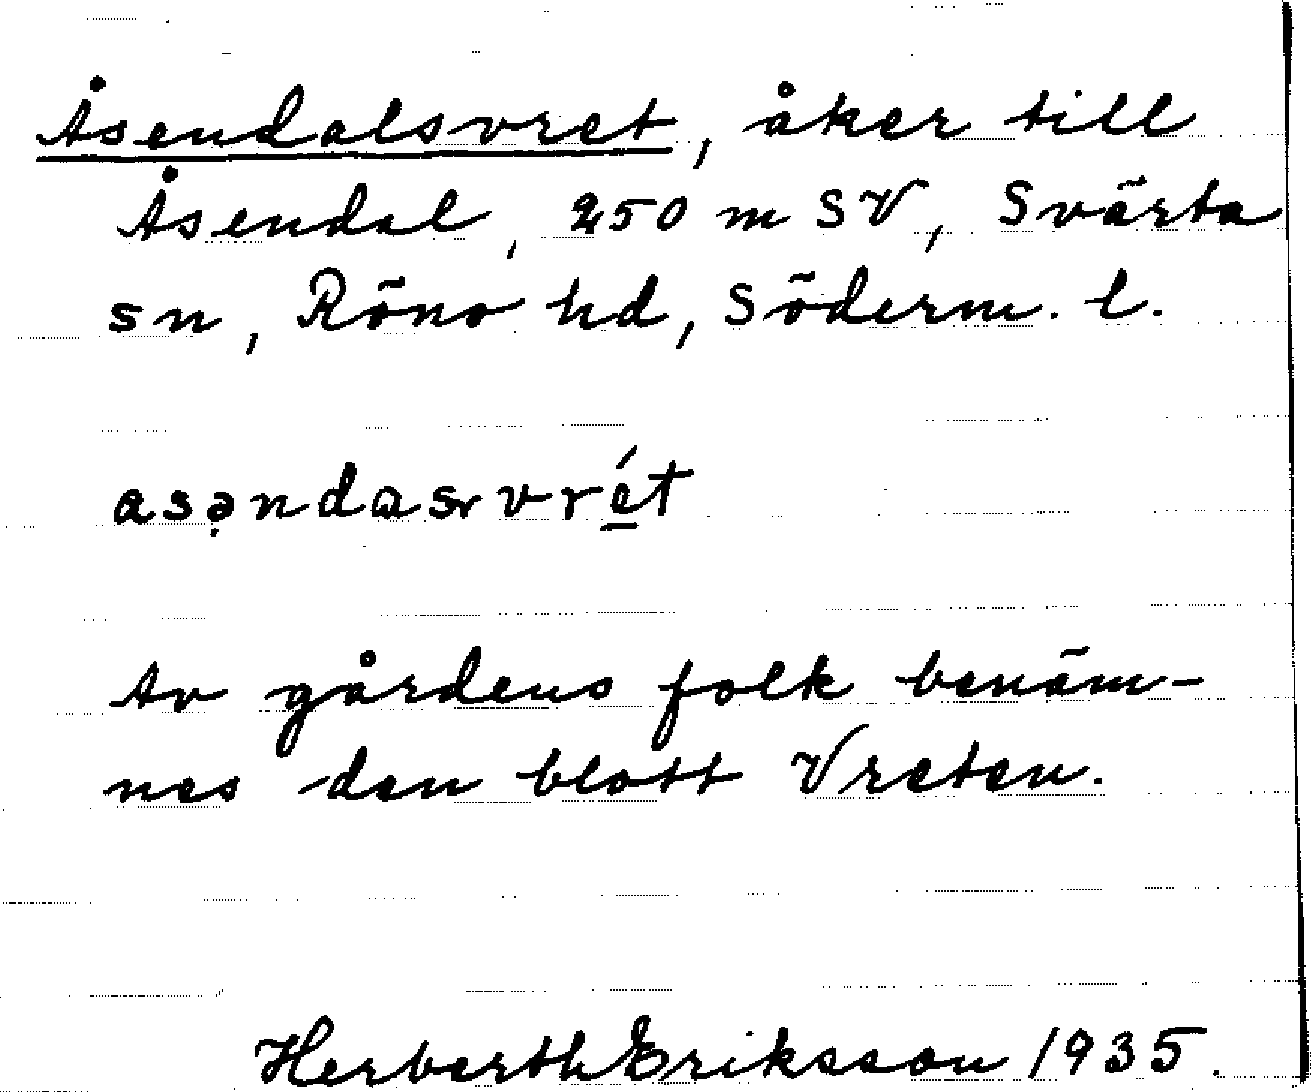 Åsendalsvret, åker till
Åsendal, 250 m SV, Svärta
sn, Röno hd, Söderm. l.
asəndasvrét
Av gårdens folk benäm-
nes den blott Vreten.
Herberth Eriksson 1935.